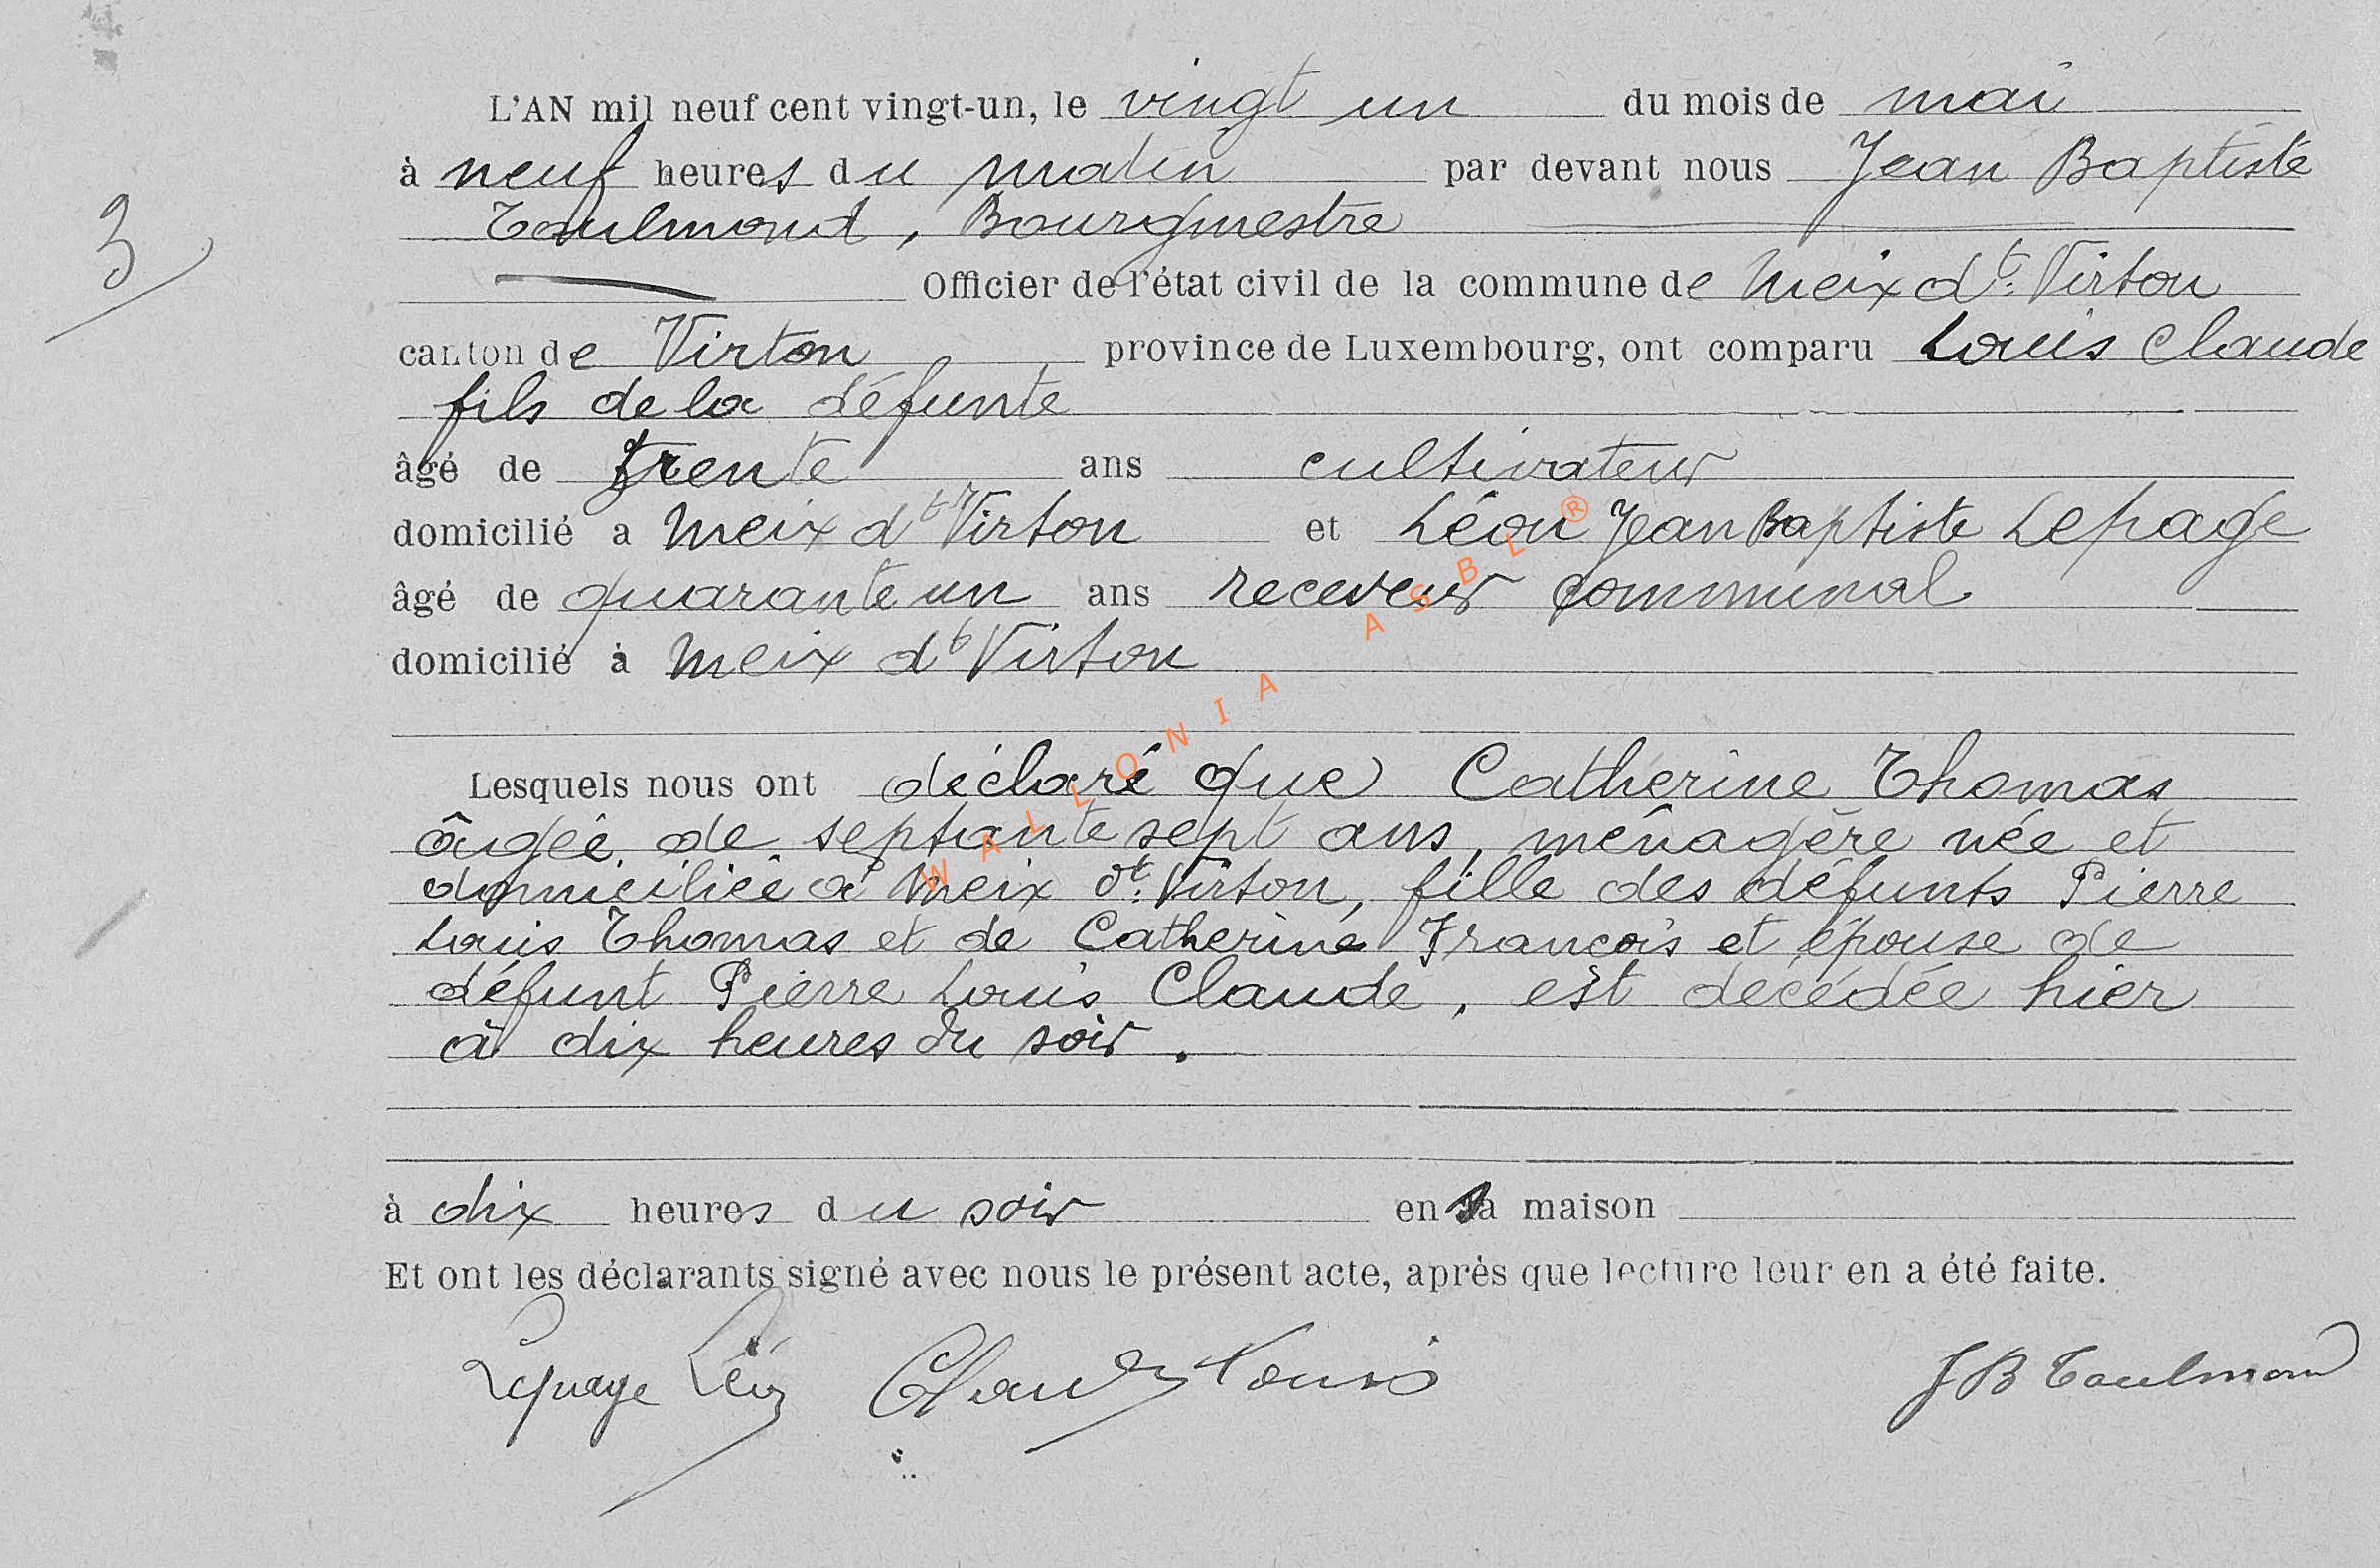 L'AN mil neuf cent vingt-un, le vingt un du mois de mai
à neuf heures du matin par devant nous Jean Baptiste
3
Toulmond, Bourgmestre
Officier de l'état civil de la commune de Meix dt Virton
canton de Virton province de Luxembourg, ont comparu Louis Claude
fils de la défunte
âgé de trente ans cultivateur
domicilié a Meix dt Virton et Léon Jean Baptiste Lepage
âgé de quarante un ans receveur communal
domicilié à Meix dt Virton
Lesquels nous ont déclaré que Catherine Thomas
âgée de septante sept ans, ménagère née et
domiciliée à Meix dt Virton, fille des défunts Pierre
Louis Thomas et de Catherine François et épouse de
défunt Pierre Louis Claude, est décédée hier
à dix heures du soir.
à dix heures du soir en sa maison
Et ont les déclarants signé avec nous le présent acte, après que lecture leur en a été faite.
Lepage Léon Claude Louis JB Toulmond
WALLONIA ASBL ®